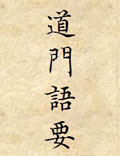 道門語要